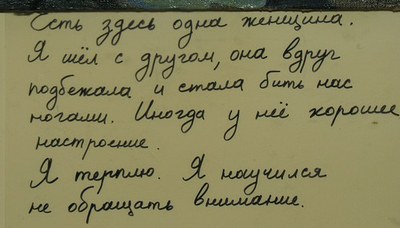 Есть здесь одна женщина.
Я шёл с другом, она вдруг
подбежала и стала бить нас
ногами. Иногда у неё хорошее
настроение.
Я терплю. Я научился
не обращать внимание.